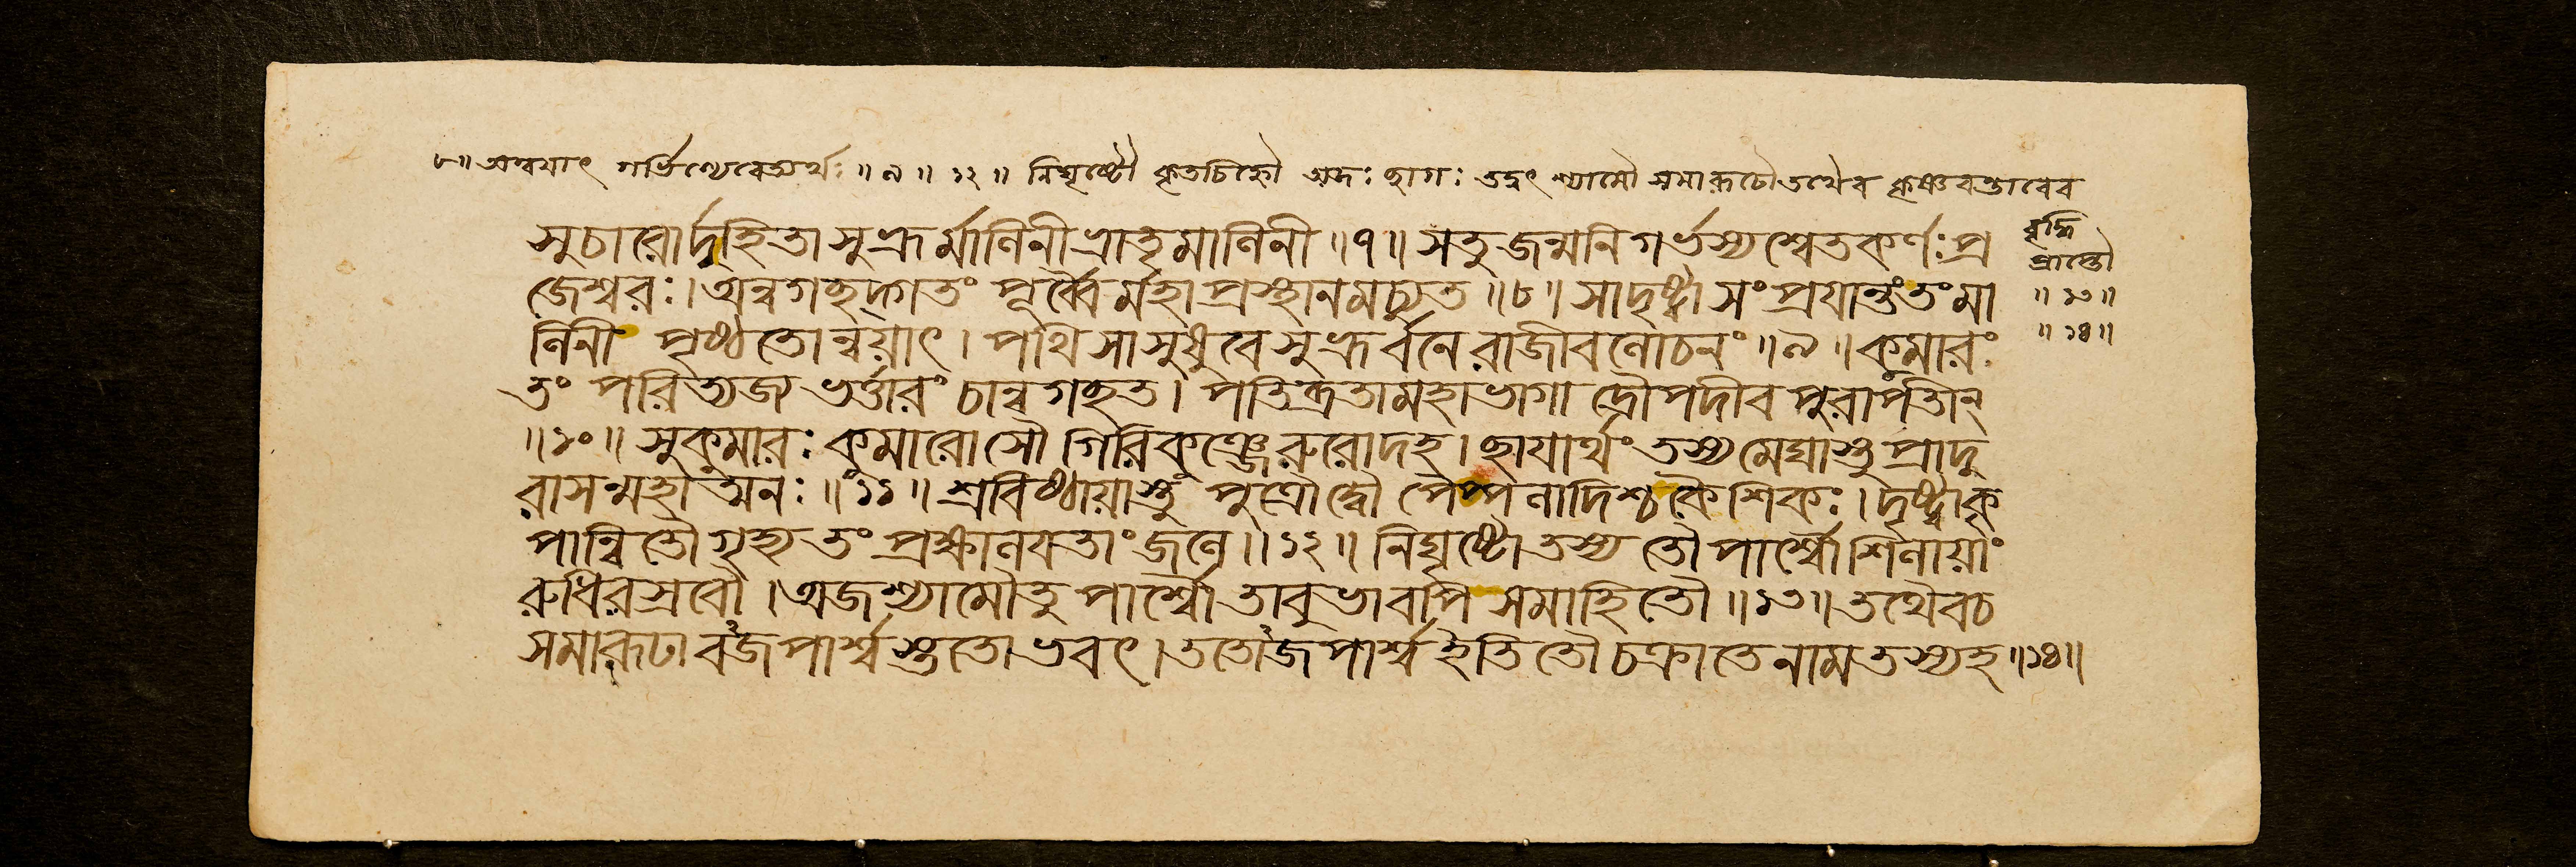 ৮॥ অন্বয়াৎ গর্ভিণ্যেবেত্যর্থঃ ॥ ৯ ॥ ১২ ॥ নিঘৃষ্টৌ কৃতচিহ্নৌ অজঃ ছাগঃ তদ্বৎ শ্যামৌ সমারূঢৌ তথৈব কৃষ্ণবর্ত্তাবেব
সুচারোর্দুহিতা সুভ্রূর্মাণিনী ভ্রাতৃমাণিনী ॥ ৭ ॥ সতু জন্মনি গর্ভস্য শ্বেতকর্ণঃ প্র
বৃদ্ধি
প্রাপ্তৌ
॥ ১৩ ॥
॥ ১৪ ॥
জেশ্বরঃ । অন্বগচ্ছদ্গতং পূর্ব্বৈর্মহাপ্রস্থানমচ্যুত ॥ ৮ ॥ সা দৃষ্ট্বা সংপ্রযান্তং তং মা
নিনী পৃষ্ঠতোন্বয়াৎ । পথি সা সুষুবে সুভ্রূর্বনে রাজীবলোচনং ॥ ৯ ॥ কুমারং
তং পরিত্যজ্য ভর্ত্তারং চান্বগচ্ছত । পতিব্রতা মহাভাগা দ্রৌপদীব পুরা পতীন্
॥ ১০ ॥ সুকুমারঃ কুমারোসৌ গিরিকুঞ্জে রুরোদহ । ছায়ার্থং তস্য মেঘাস্তু প্রাদু
রাসন্মহাত্মনঃ ॥ ১১ ॥ শ্রবিষ্ঠায়াস্তু পুত্রৌ দ্বৌ পৈপ্পলাদিশ্চ কৌশিকঃ । দৃষ্ট্বা কৃ
পান্বিতৌ গৃহ্য তং প্রক্ষালযতাং জলে ॥ ১২ ॥ নিঘৃষ্টৌ তস্য তৌ পার্শ্বৌ শিলায়াং
রুধিরস্রবৌ । অজশ্যামৌতু পার্শ্বৌ তাবুভাবপি সমাহিতৌ ॥ ১৩ ॥ তথৈবচ
সমারূঢাবজপার্শ্বস্ততোভবৎ । ততোজপার্শ্ব ইতি তৌ চক্রাতে নাম তস্যহ ॥ ১৪ ॥